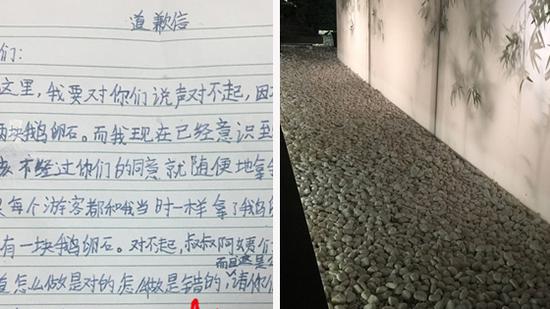 道歉信
们:
这里,我要对你们说声对不起,因
两块鹅卵石。而我现在已经意识到
该不经过你们的同意就随便地拿
果每个游客都和我当时一样拿了我的
有一块鹅卵石。对不起,叔叔阿姨们
而且这是
道怎么做是对的怎么做是错的,请你们